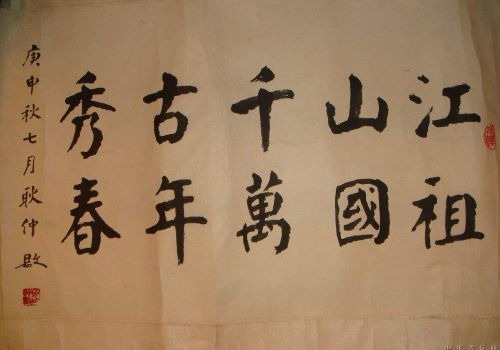 江山千古秀
祖國萬年春
庚申秋七月耿仲